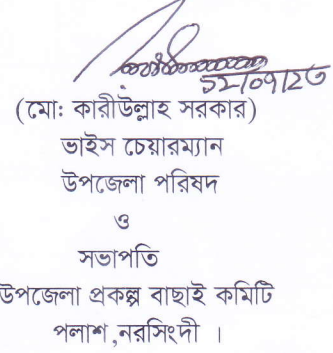 ১২/০৭/২৩
(মোঃ কারীউল্লাহ সরকার)
ভাইস চেয়ারম্যান
উপজেলা পরিষদ
ও
সভাপতি
উপজেলা প্রকল্প বাছাই কমিটি
পলাশ,নরসিংদী ।